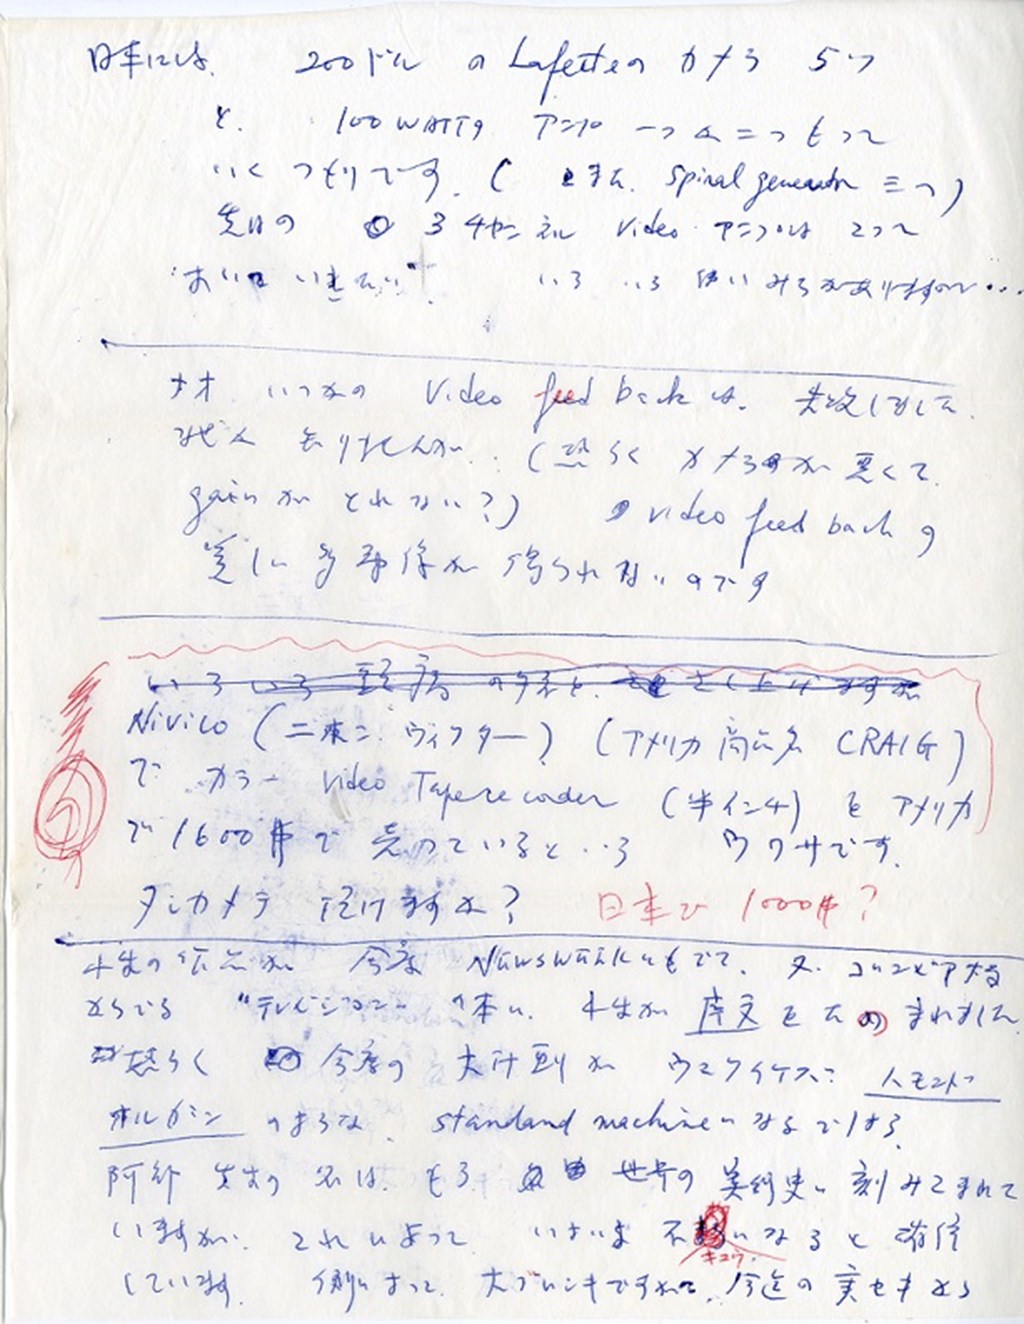 日本には、 200ドル の Lafeetteの カメラ 5つ
と、 100WATTの アンプ 一つか二つもって
いくつもりです。( また、Spiral generator 三つ)
先日の 3 チャンネル Video アンプは とって
おいて いきたい いろいろ 使いみちがありますので...
ナオ いつかの Video feed back は、失敗しました。
ぜんぶ (恐らく カメラが 悪くて
gainが とれない?) video feed backの
実に 像が 得られないのです
いろいろ
Nivico (二ホン ヴィクター) (アメリカ 商品名 CRAIG)
で カラー Video Taperecoader (半インチ) を アメリカ
で 1600$で 売っているという ウワサです。
タシカメテ 頂けますか? 日本で 1000$?
小生の 作品が 今度 Newsweekにもでて、又、コロンビア大学
からでる "テレビジョン" の本に、小生が 序文をたのまれました
恐らく 今度の 大計画が ウマクイケバ ハモンド
オルガン のような、standard machineになるでしょう。
阿部 先生の 名は、もう 世界の 美術史に 刻みこまれて
いますが、これによって いよいよ 不キュウになると 確信
しています。 例によって 大ブロシキですが、今迄の 実セキから